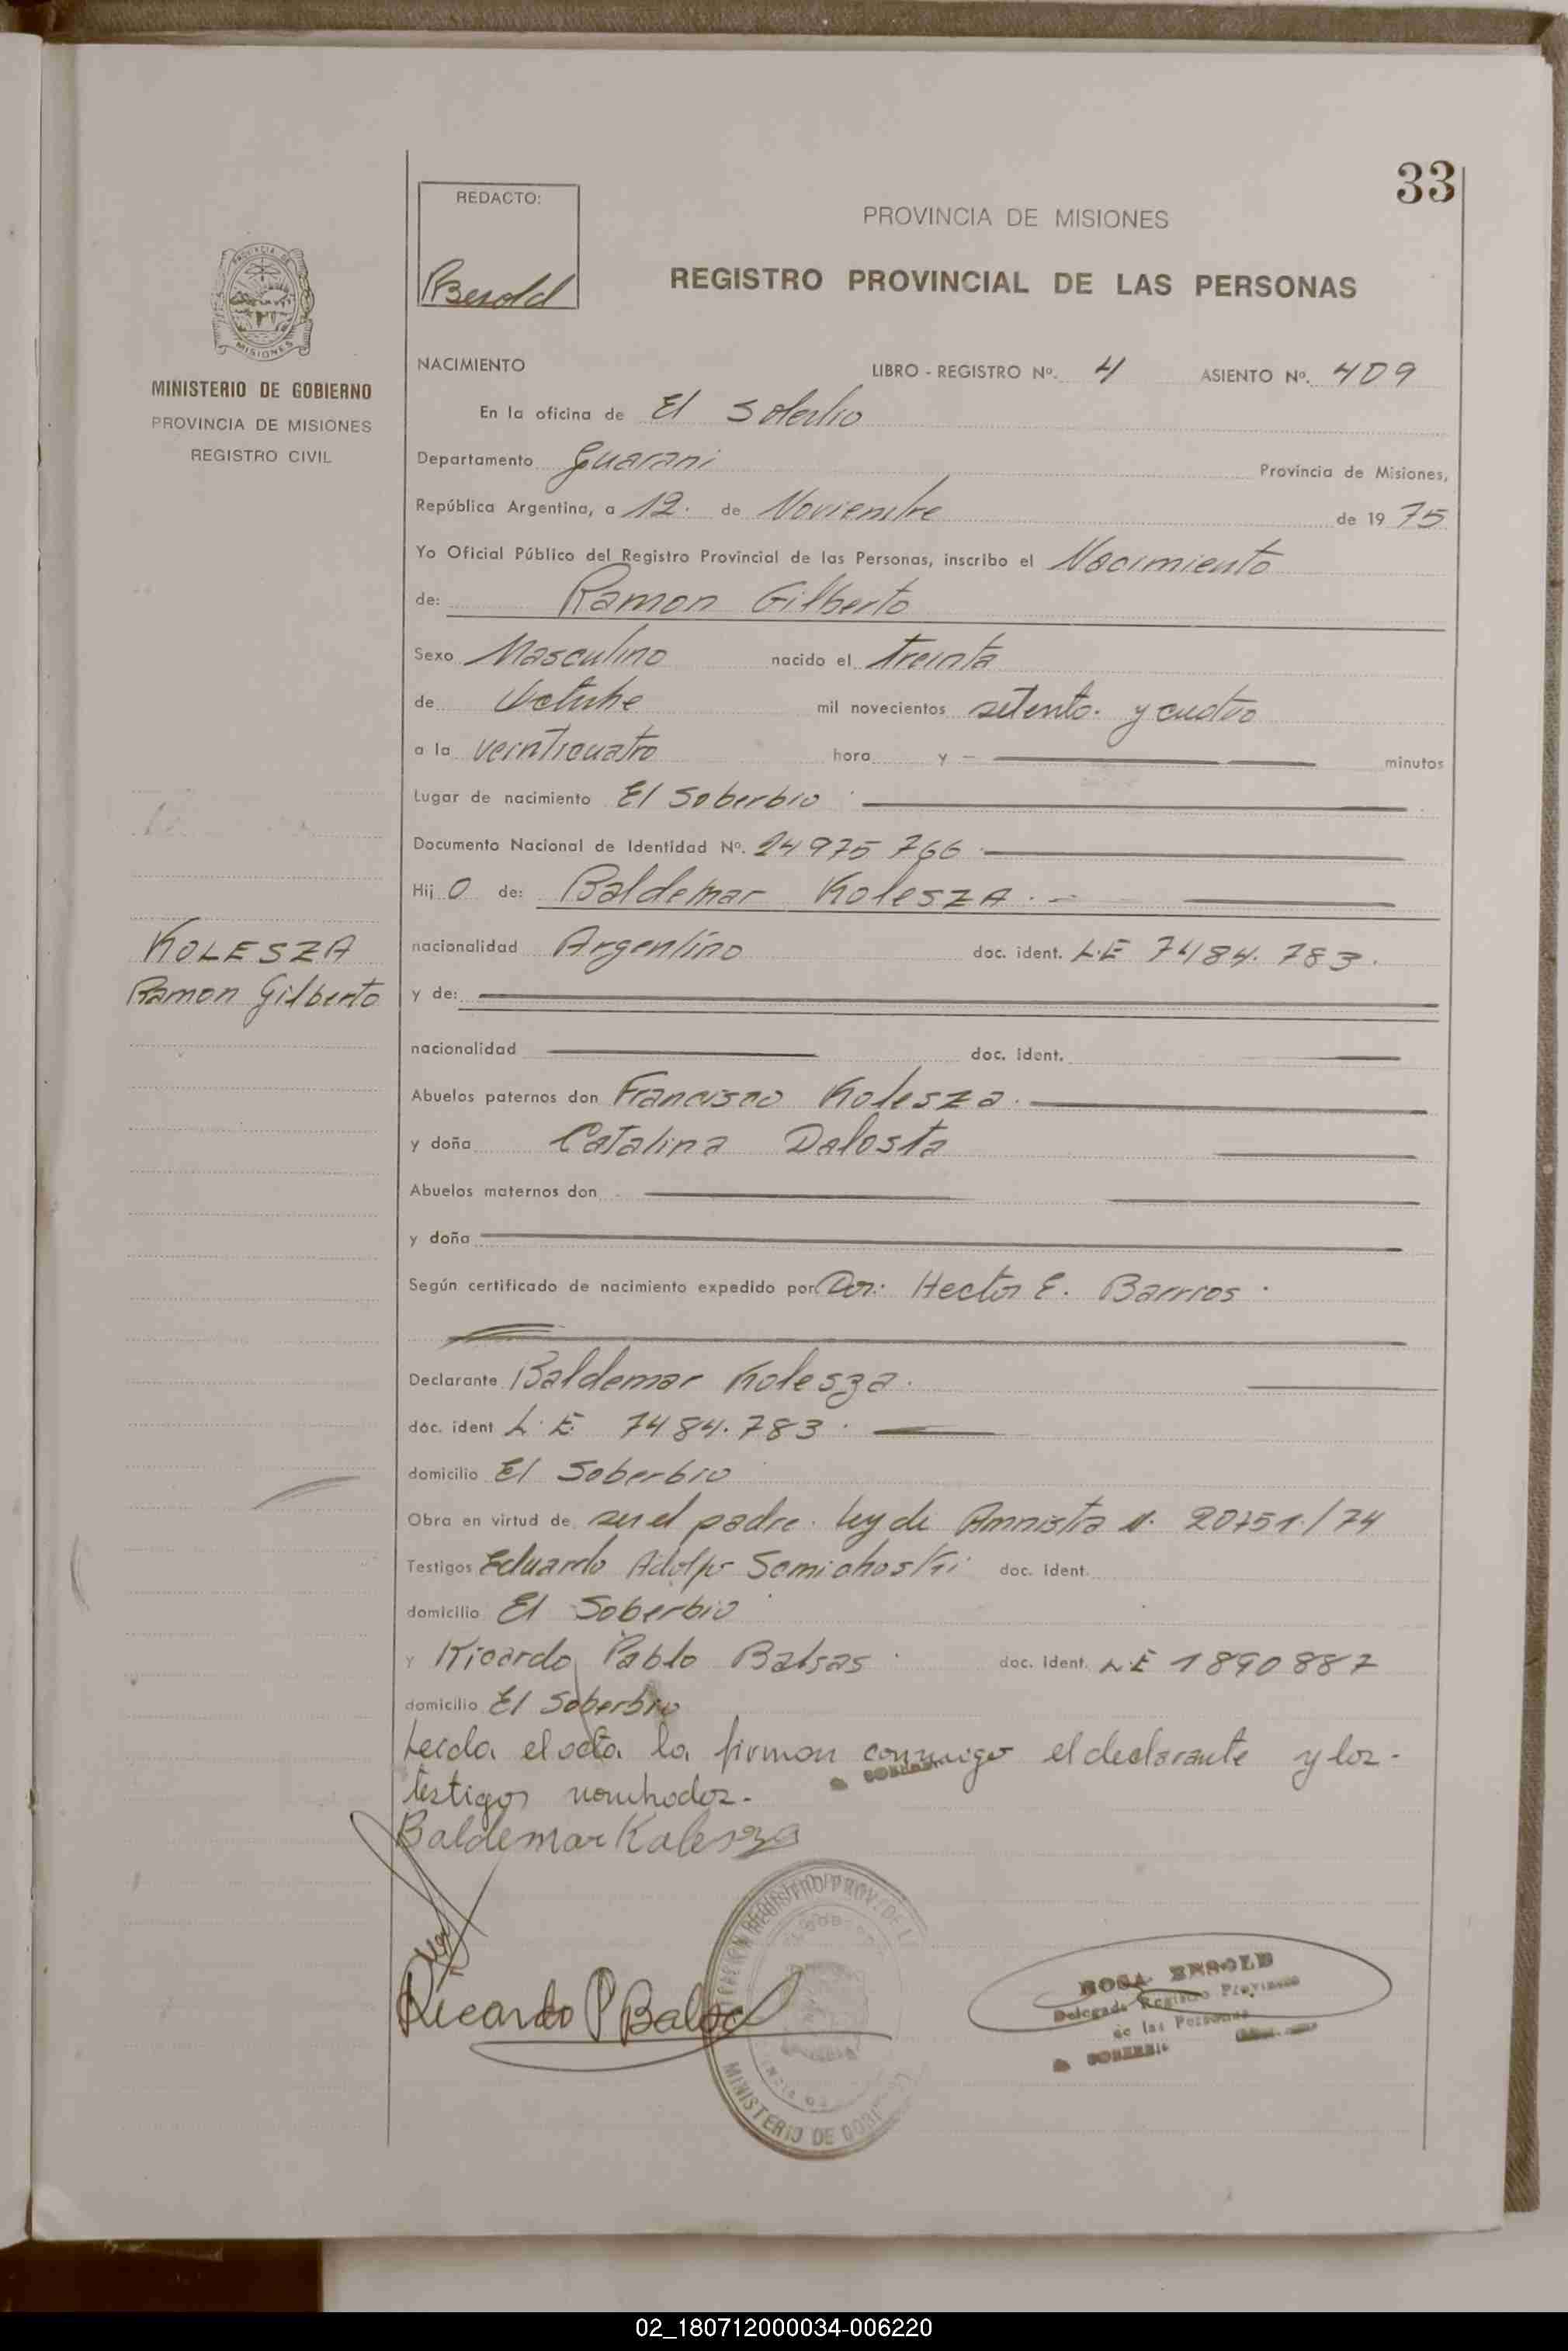 33
REDACTO:
PROVINCIA DE MISIONES
REGISTRO PROVINCIAL DE LAS PERSONAS
MISIONES
MINISTERIO DE GOBIERNO
PROVINCIA DE MISIONES
REGISTRO CIVIL
NACIMIENTO LIBRO - REGISTRO Nº. 4 ASIENTO Nº. 409
En la oficina de El Soberbio
Departamento Guarani Provincia de Misiones,
República Argentina, a 12. de Noviembre de 1975
Yo Oficial Público del Registro Provincial de las Personas, inscribo el Nacimiento
de: Ramon Gilberto
Sexo Masculino nacido el treinta
de Octubre mil novecientos setenta y cuatro
a la veinticuatro hora y minutos
Lugar de nacimiento El Soberbio
Documento Nacional de Identidad Nº. 24975 766
Hij O de: Baldemar KolesZA
KOLESZA
Ramon Gilberto
nacionalidad Argentino doc. ident. L.E 7484.783.
y de:
nacionalidad doc. ident.
Abuelos paternos don Francisco Kolesza.
y doña Catalina Dalosta
Abuelos maternos don
y doña
Según certificado de nacimiento expedido por Dor. Hector E. Barrios
Declarante Baldemar Kolesza.
doc. ident L.E. 7484.783
domicilio El Soberbio
Obra en virtud de ser el padre. Ley de Amnistia N. 20751/74
Testigos Eduardo Adolfo Semichoski doc. ident.
domicilio El Soberbio
y Ricardo Pablo Balsas doc. ident. L.E 1890887
domicilio El Soberbio
Leida el acta la firman conmigo el declarante y los-
testigos nombrados.-
Baldemar Kolesza
Ricardo P Balsa
MINISTERIO DE GOBI
ROSA BESOLD
Delegada Registro Provincial
de las Personas
EL SOBERBIO
02_180712000034-006220